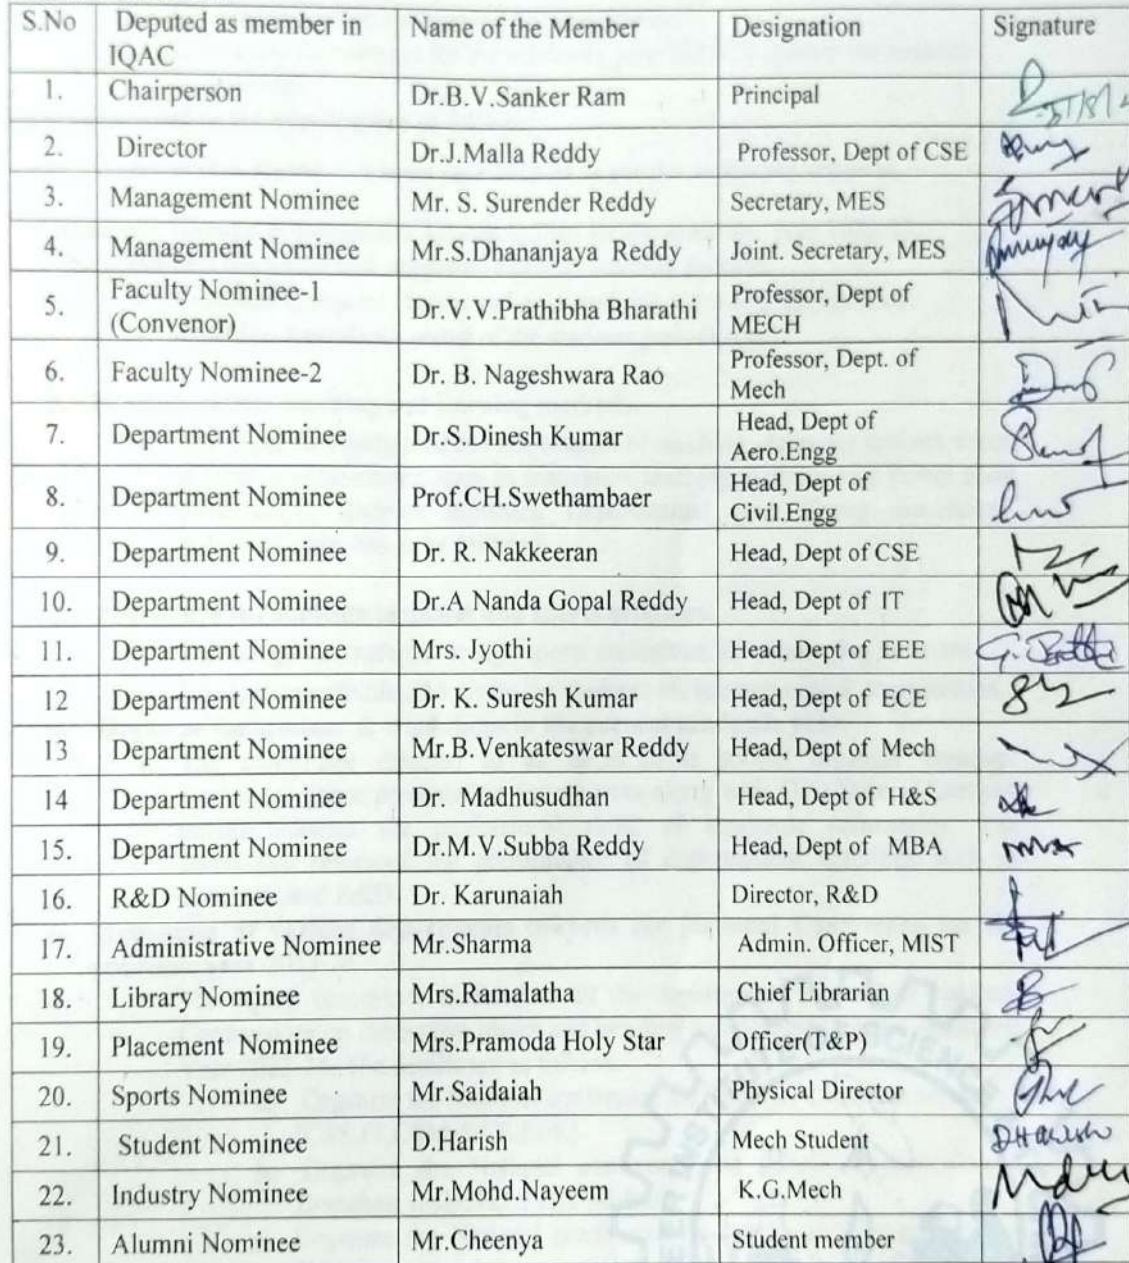 S.No Deputed as member in IQAC Name of the Member Designation Signature
1. Chairperson Dr.B.V.Sanker Ram Principal
2. Director Dr.J.Malla Reddy Professor, Dept of CSE
3. Management Nominee Mr. S. Surender Reddy Secretary, MES
4. Management Nominee Mr.S.Dhananjaya Reddy Joint. Secretary, MES
5. Faculty Nominee-1 (Convenor) Dr.V.V.Prathibha Bharathi Professor, Dept of MECH
6. Faculty Nominee-2 Dr. B. Nageshwara Rao Professor, Dept. of Mech
7. Department Nominee Dr.S.Dinesh Kumar Head, Dept of Aero.Engg
8. Department Nominee Prof.CH.Swethambaer Head, Dept of Civil.Engg
9. Department Nominee Dr. R. Nakkeeran Head, Dept of CSE
10. Department Nominee Dr.A Nanda Gopal Reddy Head, Dept of IT
11. Department Nominee Mrs. Jyothi Head, Dept of EEE
12 Department Nominee Dr. K. Suresh Kumar Head, Dept of ECE
13 Department Nominee Mr.B.Venkateswar Reddy Head, Dept of Mech
14 Department Nominee Dr. Madhusudhan Head, Dept of H&S
15. Department Nominee Dr.M.V.Subba Reddy Head, Dept of MBA
16. R&D Nominee Dr. Karunaiah Director, R&D
17. Administrative Nominee Mr.Sharma Admin. Officer, MIST
18. Library Nominee Mrs.Ramalatha Chief Librarian
19. Placement Nominee Mrs.Pramoda Holy Star Officer(T&P)
20. Sports Nominee Mr.Saidaiah Physical Director
21. Student Nominee D.Harish Mech Student
22. Industry Nominee Mr.Mohd.Nayeem K.G.Mech
23. Alumni Nominee Mr.Cheenya Student member